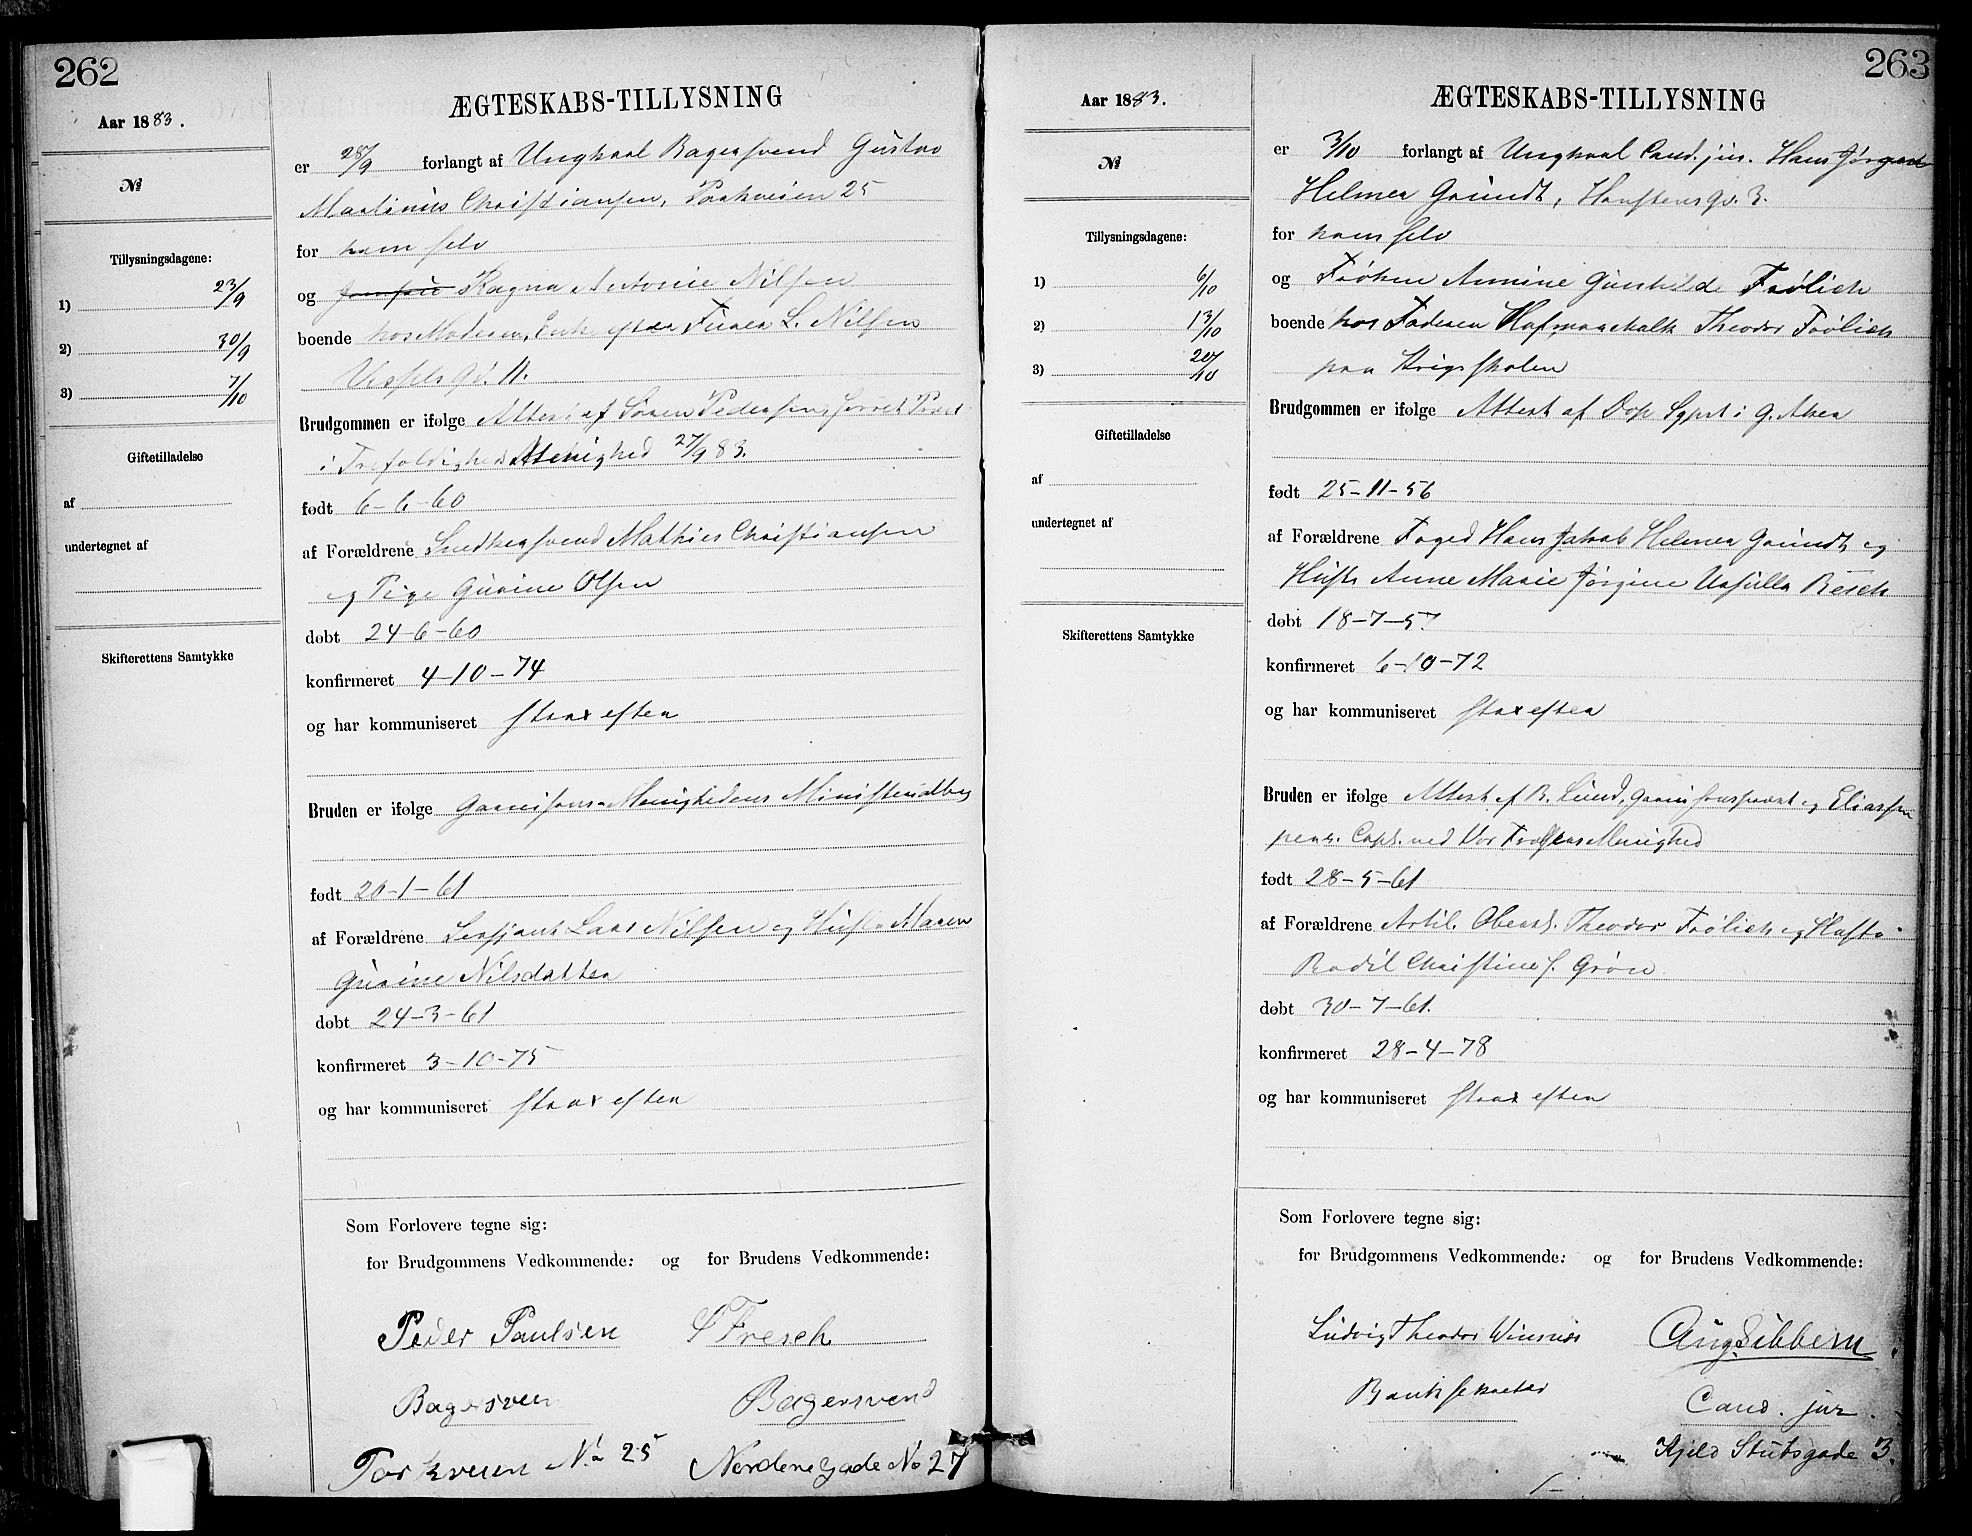 262
Aar 1883.
№
Tillysningsdagene:
1) 23/9
2) 30/9
3) 7/10
Giftetilladelse
af
undertegnet af
Skifterettens Samtykke
ÆGTESKABS-TILLYSNING
er 28/9 forlangt af Ungkarl Bagersvend Gustav
Martinius Christiansen, Parkveien 25
for ham selv
og Ragna Antonie Nilsen
boende hos Moderen, Enke efter L. Nilsen
gd. 11.
Brudgommen er ifølge Attest af Søren Pedersen,
i Trefoldigheds Menighed 27/9 83.
født 6-6-60
af Forældrene Snedkersvend Mathias Christiansen
og Pige Gurine Olsen
døbt 24-6-60
konfirmeret 4-10-74
og har kommuniseret strax efter
Bruden er ifølge Garnisons-Menighedens Ministerialbog
født 20-1-61
af Forældrene Sersjant Lars Nilsen og Hustr Maren
Gurine Nilsdatter
døbt 24-3-61
konfirmeret 3-10-75
og har kommuniseret strax efter
Som Forlovere tegne sig:
for Brudgommens Vedkommende: og for Brudens Vedkommende:
Peder Paulsen Fresch
Bagersven Bagersvend
Parkveien No 25 Nordenegade No 27
263
Aar 1883.
№
Tillysningsdagene:
1) 6/10
2) 13/10
3) 20/10
Giftetilladelse
af
undertegnet af
Skifterettens Samtykke
ÆGTESKABS-TILLYSNING
er 3/10 forlangt af Ungkarl Cand. jur. Hans Jørgen
Helmer Grundt, gd. 3.
for ham selv
og Frøken Annine Gunhilde Frølich
boende hos Faderen Hofmarschalk Theodor Frølich
paa Krigsskolen
Brudgommen er ifølge Attest af Sgprt i G. Aker
født 25-11-56
af Forældrene Foged Hans Jakob Helmer Grundt og
Hustr Anne Marie Jørgine Ursulla Besch
døbt 18-7-57
konfirmeret 6-10-72
og har kommuniseret strax efter
Bruden er ifølge Attest af B. Lund, Garnisonsprest og Eliassen
pers. Capl. ved Vor Frelsers Menighed
født 28-5-61
af Forældrene Artil. Oberst. Theodor Frølich og Hustr
Bodil Christine f. Grøn
døbt 30-7-61.
konfirmeret 28-4-78
og har kommuniseret strax efter
Som Forlovere tegne sig:
for Brudgommens Vedkommende: og for Brudens Vedkommende:
Ludvig Theodor Winsnes Aug Sibbern
Banksekretær Cand. jur.
Kjeld Stubsgade 3.